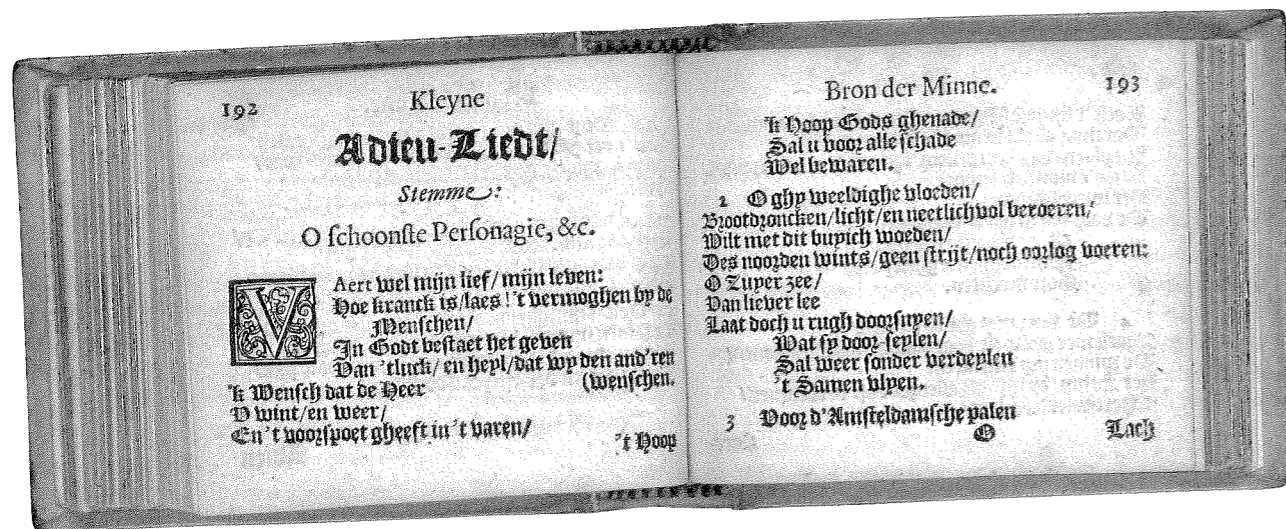 192
Kleyne
Adieu-Liedt/
Stemme:
O schoonste Personagie, &c.
VAert wel mijn lief/ mijn leven:
Hoe kranck is/laes! 't vermoghen by de
Menschen/
In Godt bestaet het geven
Van 'tluck/ en heyl/dat wy den and'ren
'k Wensch dat de Heer (wenschen.
V wint/en weer/
En 't voorspoet gheeft in 't varen/
't Hoop
Bron der Minne.
193
'k Hoop Gods ghenade/
Sal u voor alle schade
Wel bewaren.
2 O ghy weeldighe vloeden/
Brootdroncken/licht/en neetlich vol beroeren/
Wilt met dit buyich woeden/
Des noorden wints/geen strijt/noch oorlog voeren:
O Zuyer zee/
Van liever lee
Laat doch u rugh doorsnyen/
Wat sy door-seylen/
Sal weer sonder verdeylen
't Samen vlyen.
3 Voor d'Amsteldamsche palen
O
Lach